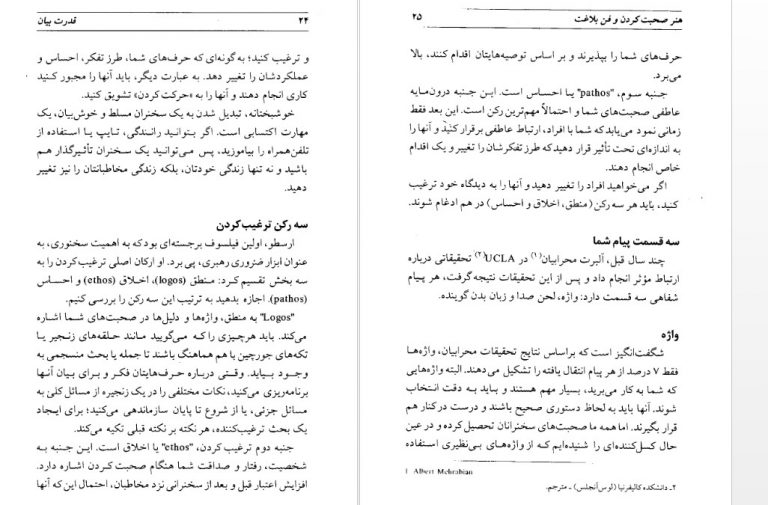 ۲۴ قدرت بیان
و ترغیب کنید؛ به گونه‌ای که حرف‌های شما، طرز تفکر، احساس و
عملکردشان را تغییر دهد. به عبارت دیگر، باید آنها را مجبور کنید
کاری انجام دهند و آنها را به «حرکت کردن» تشویق کنید.
خوشبختانه، تبدیل شدن به یک سخنران مسلط و خوش‌بیان، یک
مهارت اکتسابی است. اگر بتوانید رانندگی، تایپ یا استفاده از
تلفن‌همراه را بیاموزید، پس می‌توانید یک سخنران تأثیرگذار هم
باشید و نه تنها زندگی خودتان، بلکه زندگی مخاطبانتان را نیز تغییر
دهید.
سه رکن ترغیب‌کردن
ارسطو، اولین فیلسوف برجسته‌ای بود که به اهمیت سخنوری، به
عنوان ابزار ضروری رهبری، پی برد. او ارکان اصلی ترغیب‌کردن را به
سه بخش تقسیم کرد: منطق (logos)، اخلاق (ethos) و احساس
(pathos). اجازه بدهید به ترتیب این سه رکن را بررسی کنیم.
"Logos" به منطق، واژه‌ها و دلیل‌ها در صحبت‌های شما اشاره
می‌کند. باید هرچیزی را که می‌گویید مانند حلقه‌های زنجیر یا
تکه‌های جورچین با هم هماهنگ باشند تا جمله یا بحث منسجمی به
وجود بیاید. وقتی درباره حرف‌هایتان فکر و برای بیان آنها
برنامه‌ریزی می‌کنید، نکات مختلفی را در یک زنجیره از مسائل کلی به
مسائل جزئی، یا از شروع تا پایان سازماندهی می‌کنید؛ برای ایجاد
یک بحث ترغیب‌کننده، هر نکته بر نکته قبلی تکیه می‌کند.
جنبه دوم ترغیب کردن، "ethos" یا اخلاق است. این جنبه به
شخصیت، رفتار و صداقت شما هنگام صحبت کردن اشاره دارد.
افزایش اعتبار قبل و بعد از سخنرانی نزد مخاطبان، احتمال این که آنها
هنر صحبت کردن و فن بلاغت ۲۵
حرف‌های شما را بپذیرند و بر اساس توصیه‌هایتان اقدام کنند، بالا
می‌برد.
جنبه سوم، "pathos" یا احساس است. این جنبه درون‌مایه
عاطفی صحبت‌های شما و احتمالاً مهم‌ترین رکن است. این بعد فقط
زمانی نمود می‌یابد که شما با افراد، ارتباط عاطفی برقرار کنید و آنها را
به اندازه‌ای تحت تأثیر قرار دهید که طرز تفکرشان را تغییر و یک اقدام
خاص انجام دهند.
اگر می‌خواهید افراد را تغییر دهید و آنها را به دیدگاه خود ترغیب
کنید، باید هر سه رکن (منطق، اخلاق و احساس) در هم ادغام شوند.
سه قسمت پیام شما
چند سال قبل، آلبرت محرابیان(۱) در UCLA(۲) تحقیقاتی درباره
ارتباط مؤثر انجام داد و پس از این تحقیقات نتیجه گرفت، هر پیام
شفاهی سه قسمت دارد: واژه، لحن صدا و زبان بدن گوینده.
واژه
شگفت‌انگیز است که براساس نتایج تحقیقات محرابیان، واژه‌ها
فقط ۷ درصد از هر پیام انتقال یافته را تشکیل می‌دهند. البته واژه‌هایی
که شما به کار می‌برید، بسیار مهم هستند و باید به دقت انتخاب
شوند. آنها باید به لحاظ دستوری صحیح باشند و درست در کنار هم
قرار بگیرند. اما همه ما صحبت‌های سخنرانان تحصیل کرده و در عین
حال کسل‌کننده‌ای را شنیده‌ایم که از واژه‌های بی‌نظیری استفاده
1 Albert Mehrabian
۲- دانشکده کالیفرنیا (لوس‌آنجلس) ـ مترجم.